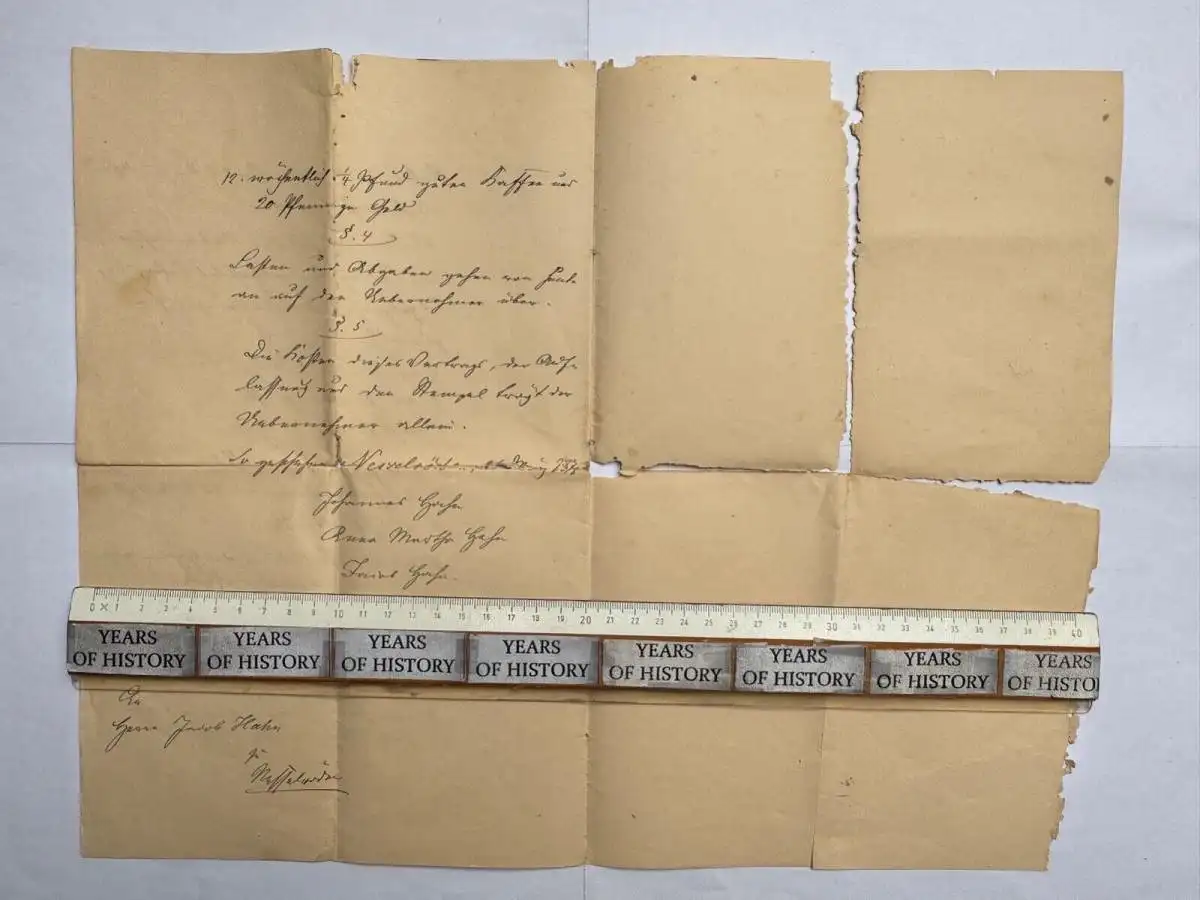 12. wöchentlich 1/4 Pfund guten Kaffee und
20 Pfennige Geld
§. 4
Lasten und Abgaben gehen von heute
an auf den Uebernehmer über.
§. 5
Die Kosten dieses Vertrags, der Auf-
lassung und den Stempel trägt der
Uebernehmer allein.
So geschehen Nesselröden
Johannes Hahn
Anna Martha Hahn
Hahn.
0 1 2 3 4 5 6 7 8 9 10 11 12 13 14 15 16 17 18 19 20 21 22 23 24 25 26 27 28 29 30 31 32 33 34 35 36 37 38 39 40
YEARS OF HISTORY YEARS OF HISTORY YEARS OF HISTORY YEARS OF HISTORY YEARS OF HISTORY YEARS OF HISTORY YEARS OF HISTORY YEARS OF HISTO
An
Herrn Jacob Hahn
zu
Nesselröden